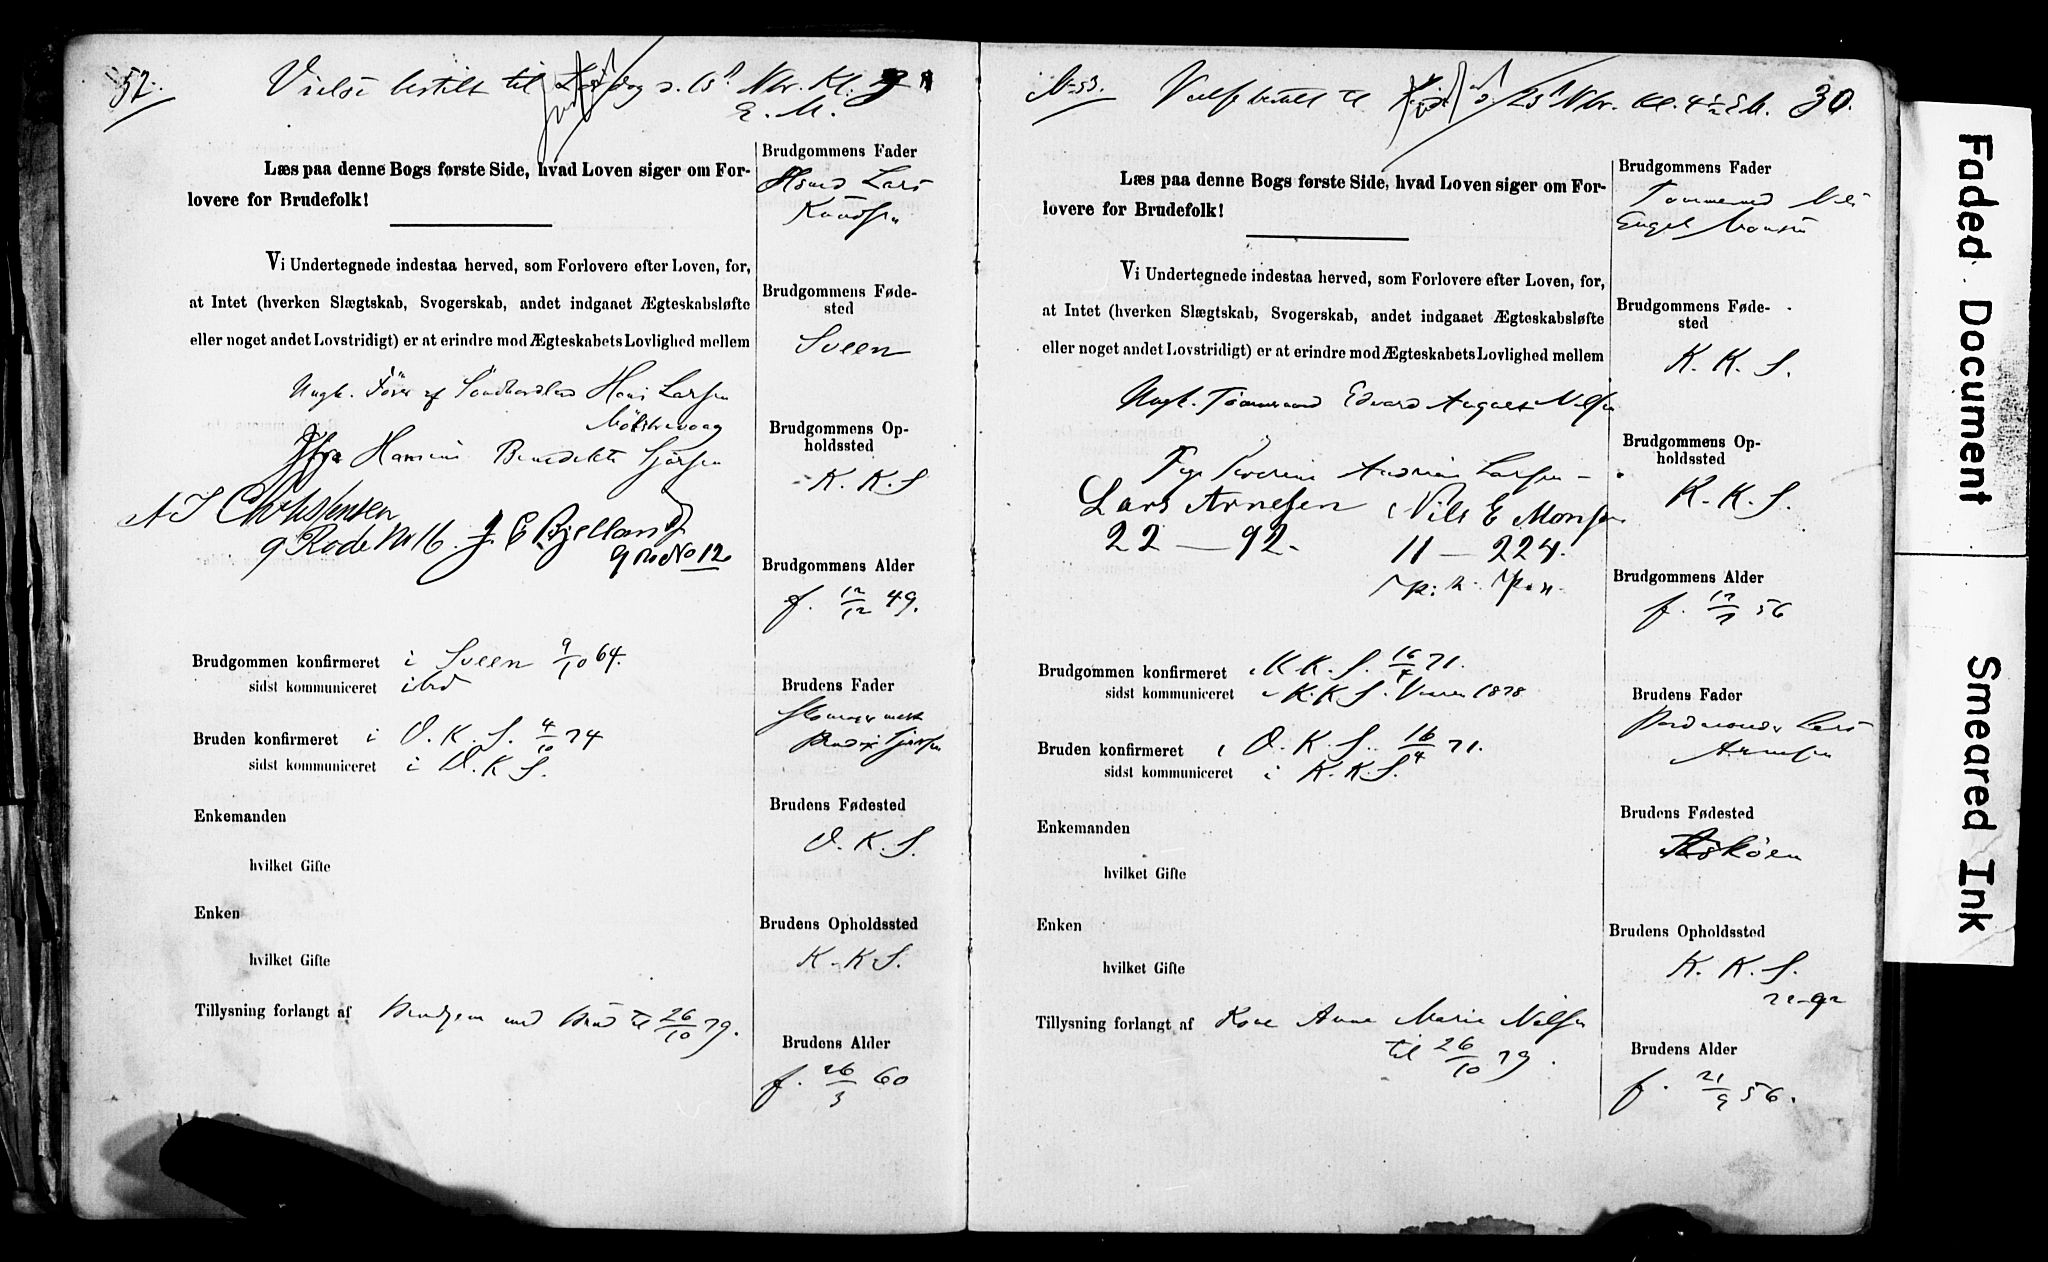 52.
Vielse bestilt til Nbr. Kl.
E. M.
Læs paa denne Bogs første Side, hvad Loven siger om For-
lovere for Brudefolk!
Vi Undertegnede indestaa herved, som Forlovere efter Loven, for,
at Intet (hverken Slægtskab, Svogerskab, andet indgaaet Ægteskabsløfte
eller noget andet Lovstridigt) er at erindre mod Ægteskabets Lovlighed mellem
Ungk. Fører af Larsen
Benedikte
A J Christensen
9 Rode No 16. J. E Bjelland
9 No 12
Brudgommen konfirmeret i Sveen 9/10 64.
sidst kommuniceret ibid
Bruden konfirmeret i D. K. S. 4/10 74
sidst kommuniceret i D. K S.
Enkemanden
hvilket Gifte
Enken
hvilket Gifte
Tillysning forlangt af Brudgom med Brud til 26/10 79.
Brudgommens Fader
Lars
Knudsen
Brudgommens Føde-
sted
Sveen
Brudgommens Op-
holdssted
K. K. S
Brudgommens Alder
f. 12/12 49.
Brudens Fader
Brudens Fødested
D. K. S.
Brudens Opholdssted
K. K S.
Brudens Alder
f. 26/3 60
No 53. til Nbr. Kl. 4 1/2 E M. 30.
Læs paa denne Bogs første Side, hvad Loven siger om For-
lovere for Brudefolk!
Vi Undertegnede indestaa herved, som Forlovere efter Loven, for,
at Intet (hverken Slægtskab, Svogerskab, andet indgaaet Ægteskabsløfte
eller noget andet Lovstridigt) er at erindre mod Ægteskabets Lovlighed mellem
Ungk. Tømmermand Edvard August Nilsen
Pige Severine Andrea Larsen
Lars Arnesen Nils E Monsen
22 — 92. 11 — 224.
Brudgommen konfirmeret i K. K. S. 16/4 71.
sidst kommuniceret i K. K S. 1878
Bruden konfirmeret i D. K. S. 16/4 71.
sidst kommuniceret i K. K. S.
Enkemanden
hvilket Gifte
Enken
hvilket Gifte
Tillysning forlangt af Kone Anne Marie Nilsen
til 26/10 79.
Brudgommens Fader
Tømmermd Nils
Engel Monsen
Brudgommens Føde-
sted
K. K. S.
Brudgommens Op-
holdssted
K. K. S.
Brudgommens Alder
f. 12/7 56
Brudens Fader
Lars
Arnesen
Brudens Fødested
Askøen
Brudens Opholdssted
K. K. S.
22-92
Brudens Alder
f. 21/9 56.
Faded Document
Smeared Ink